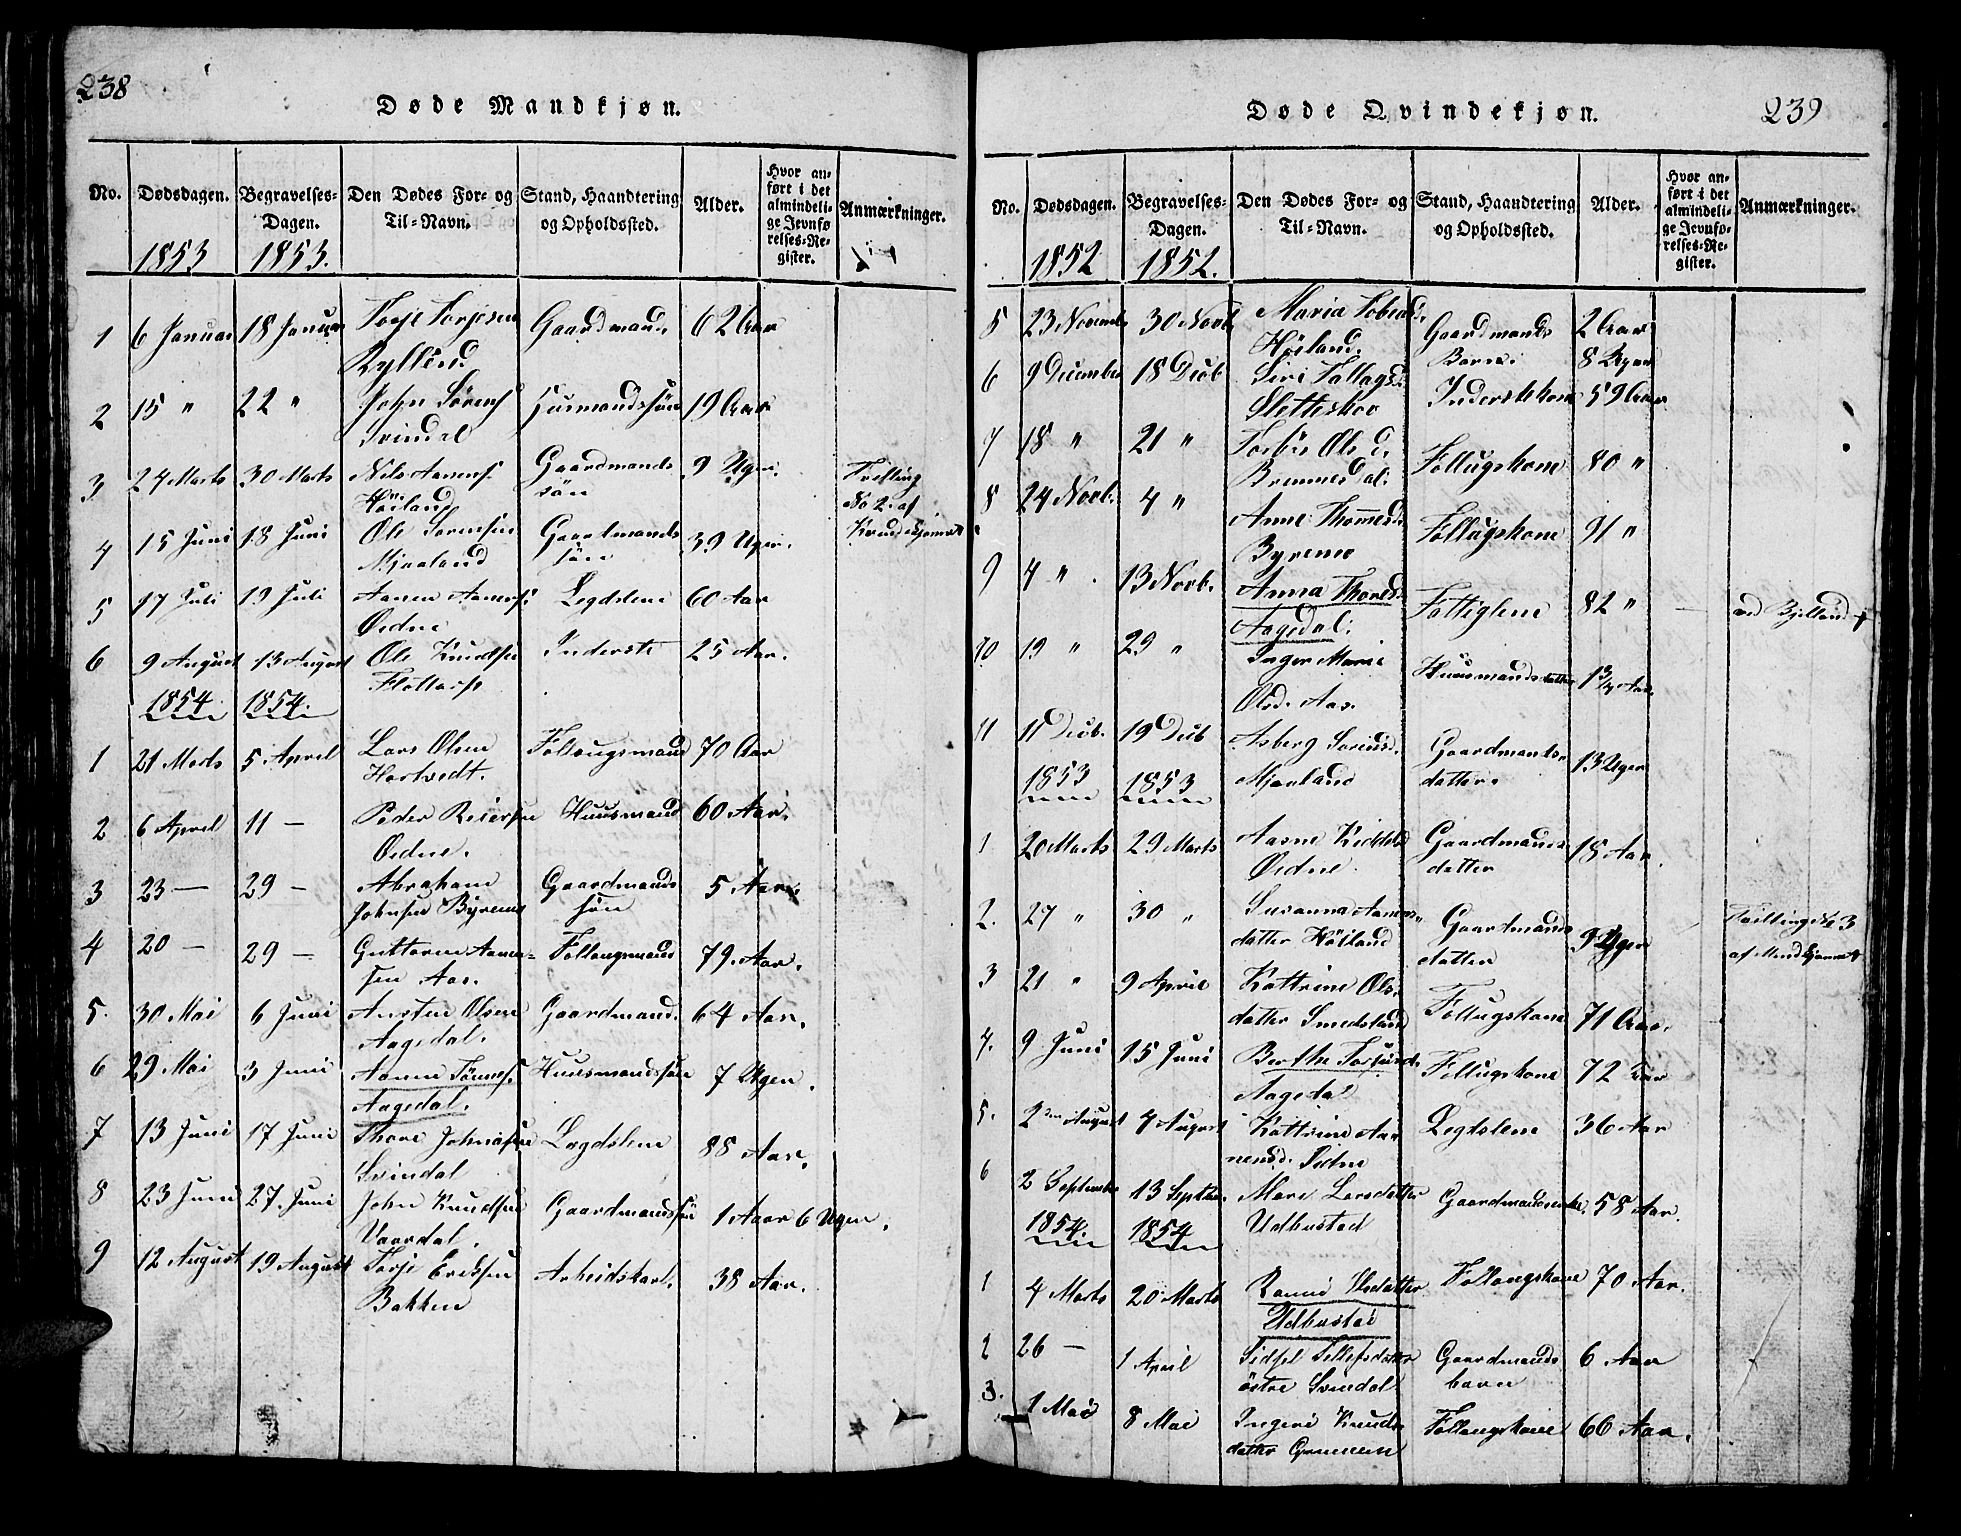 238
Døde Mandkjøn.
No. Dødsdagen. Begravelses-Dagen. Den Dødes For- og Til-Navn. Stand, Haandtering og Opholdssted. Alder. Hvor anført i det almindelige Jevnførelses-Register. Anmærkninger.
1853 1853.
1 6 Januar 18 Januar Torje Torjesen Gaardmand. 62 Aar
Kylland
2 15 " 22 " John Sörens. Huusmandssön 19 Aar
Svindal
3 24 Marts 30 Marts Nils Aanens. Gaardmands 9 Uger. Tvilling
Höiland sön No 2. af
4 15 Juni 18 Juni Ole Sorensen Gaardmands 39 Uger. Kvindekjønnet
Mjaaland sön
5 17 Juli 19 Juli Aanen Aanens. Legdslem 60 Aar
Öidne
6 9 August 13 August Ole Knudsen Inderste 25 Aar.
1854 1854
1 21 Marts 5 April Lars Olsen Föllaugsmand 70 Aar
Hortvedt.
2 6 April 11 — Peder Reiersen Huusmand 60 Aar.
Öidne.
3 23 — 29 — Abraham Gaardmands 5 Aar
Johnsen Byremo sön
4 20 — 29 — Guttorm Aanen- Follaugsmand 79. Aar.
sen Aas.
5. 30 Mai 6 Juni Austen Olsen Gaardmand. 64 Aar.
Aagedal.
6 29 Mai 3 Juni Aanen Tönnes. Huusmandssön 7 Uger.
Aagedal.
7 13 Juni 17 Juni Thore Johnsen Lægdslem 88 Aar.
Svindal
8 23 Juni 27. Juni John Knudsen Gaardmandssön 1 Aar 6 Uger.
Vaardal.
9 12 August 19 August Torje Eriksen Arbeidskarl. 38 Aar.
Bakken
239
Døde Qvindekjøn.
No. Dødsdagen. Begravelses-Dagen. Den Dødes For- og Til-Navn. Stand, Haandtering og Opholdssted. Alder. Hvor anført i det almindelige Jevnførelses-Register. Anmærkninger.
1852 1852.
5 23 Novembr 30 Novb Maria Tobiasd. Gaardmands 2 Aar
Höiland. Barn. 8 Uger
6 9 December 18 Decb Siri Tallagsd. Inderstekone 59 Aar
Sletteskov
7 18 " 21 " Torbör Olsd. Föllugskone 80 "
Bremnesdal.
8 24 Novb. 4 " Anne Thommesd. Föllugskone 91 "
Byremo
9 4 " 13 Novb. Anna Thoresd. Fattiglem 82 " ved Bjelland
Aagedal.
10 19 " 29 " Inger Marie Huusmandsdatter 1 3/4 Aar.
Olsd. Aas.
11 11 Decb. 19 Decb Asberg Sorensd. Gaardmands- 13 Uger
1853 1853 Mjaaland datter.
1 20 Marts 29 Marts Aasne Kiddelsd Gaardmands 18 Aar.
Öidne. datter
2. 27 " 30 " Susanna Aanens- Gaardmands 9 Uger Tvilling No 3
datter Höiland datter af Mandkjønnet
3 21 " 9 April Kattrine Ols- Föllugskone 71 Aar.
datter Smedsland
4. 9 Juni 15 Juni Berthe Torjusd. Föllugskone 72 Aar
Aagedal
5. 2den August 4 August Kattrine Aa- Legdslem 36 Aar
nensd. Öidne
6 2 September 13 Septbr. Mari Larsdatter Gaardmandsenke. 58 Aar.
1854 1854 Udbustad
1 4 Marts 20 Marts Follaugskone 70 Aar.
Udbustad
2 26 — 1 April Sidsel Tellefsdatter Gaardmands 6 Aar
östre Svindal barn
3. 1 Mai 8 Mai Ingeri Knuds- Follaugskone 66 Aar.
datter